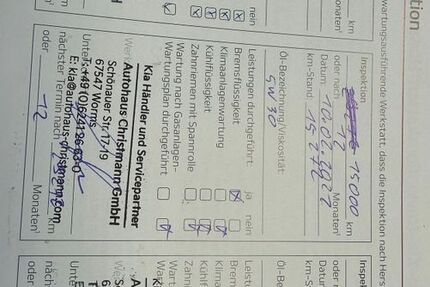 tion
wartungsausführende Werkstatt, dass die Inspektion nach Hers
Inspektion
15000 km
oder nach 12 Monaten¹
Datum: 10.02.2022
km-Stand: 15278
Öl-Bezeichnung/Viskosität:
5W30
Leistungen durchgeführt: ja nein
Bremsflüssigkeit
Klimaanlagenwartung
Kühlflüssigkeit
Zahnriemen mit Spannrolle
Wartung nach Gasanlagen-
Wartungsplan durchgeführt
Kia Händler und Servicepartner
Autohaus Christmann GmbH
Schönauer Str. 17-19
67547 Worms
E: kia@autohaus-christmann.com
nächster Termin nach km
oder 12 Monaten¹
km
Monaten¹
nein
oder n
Datum
km-S
Öl-B
Leist
Brem
Klima
Kühlf
Zahni
Wart
Wart
Ki
Unte
näch
oder